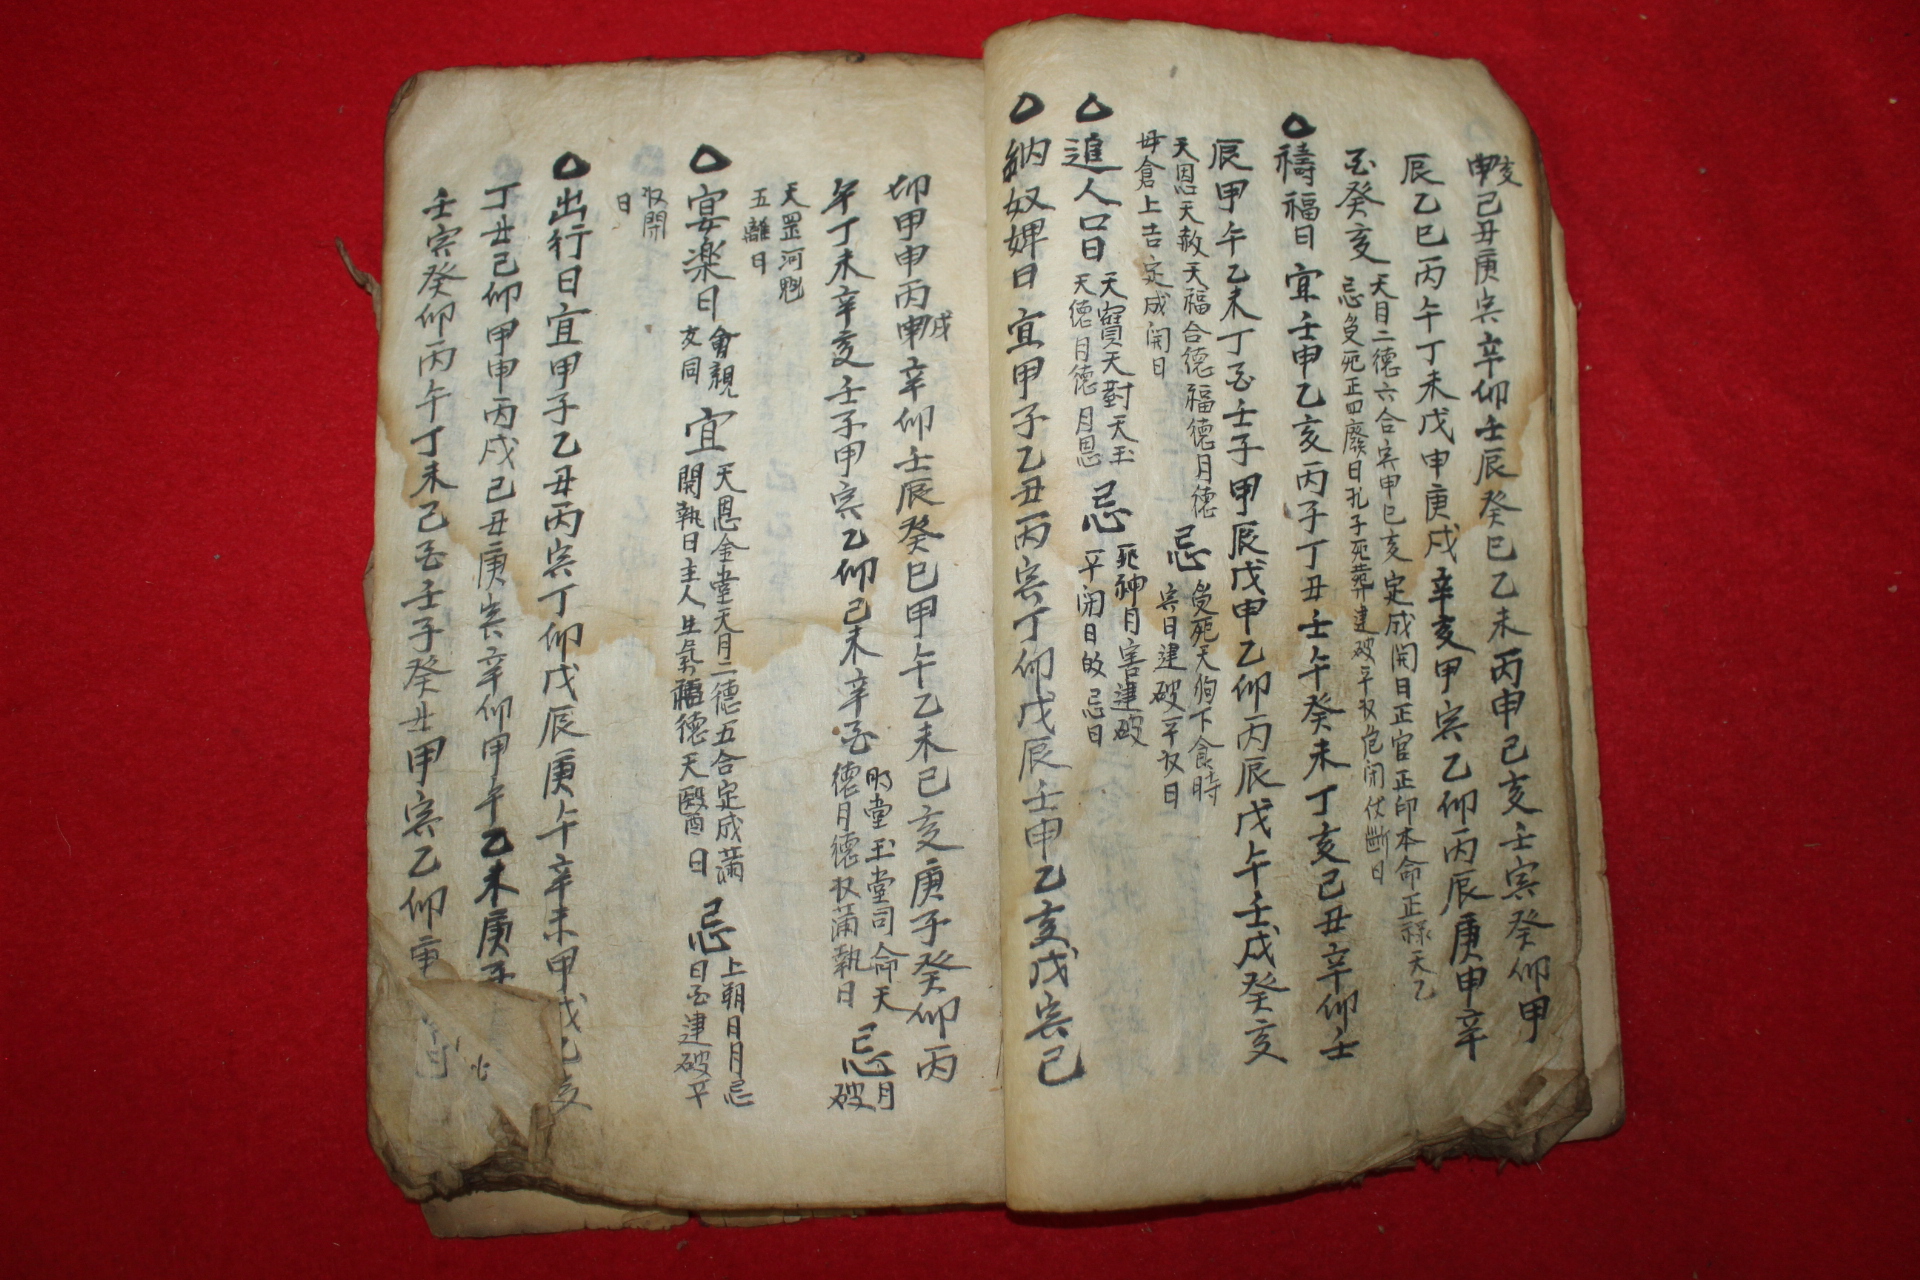 亥申己丑庚寅辛卯壬辰癸巳乙未丙申己亥壬寅癸卯甲
辰乙巳丙午丁未戊申庚戌辛亥甲寅乙卯丙辰庚申辛
酉癸亥
天月二德六合寅申巳亥定成開日正官正印本命正祿天乙
忌受死正四廢日孔子死葬建破平收危閉伏斷日
禱福日宜壬申乙亥丙子丁丑壬午癸未丁亥己丑辛卯壬
辰甲午乙未丁酉壬子甲辰戊申乙卯丙辰戊午壬戌癸亥
天恩天赦天福合德福德月德
母倉上吉定成開日
忌
受死天狗下食時
寅日建破平收日
進人口日
天寶天對天玉
天德月德月恩
忌
死神月害建破
平閉日的忌日
納奴婢日宜甲子乙丑丙寅丁卯戊辰壬申乙亥戊寅己
卯甲申丙申戌辛卯壬辰癸巳甲午乙未己亥庚子癸卯丙
午丁未辛亥壬子甲寅乙卯己未辛酉
明堂玉堂司命天
德月德收滿執日
忌
月
破
天罡河魁
五離日
宴楽日
會親
友同
宜
天恩金堂天月二德五合定成滿
開執日主人生氣福德天醫日
忌
上朔日月忌
日酉建破平
收閉
日
出行日宜甲子乙丑丙寅丁卯戊辰庚午辛未甲戌乙亥
丁丑己卯甲申丙戌己丑庚寅辛卯甲午乙未庚子
壬寅癸卯丙午丁未己酉壬子癸丑甲寅乙卯庚